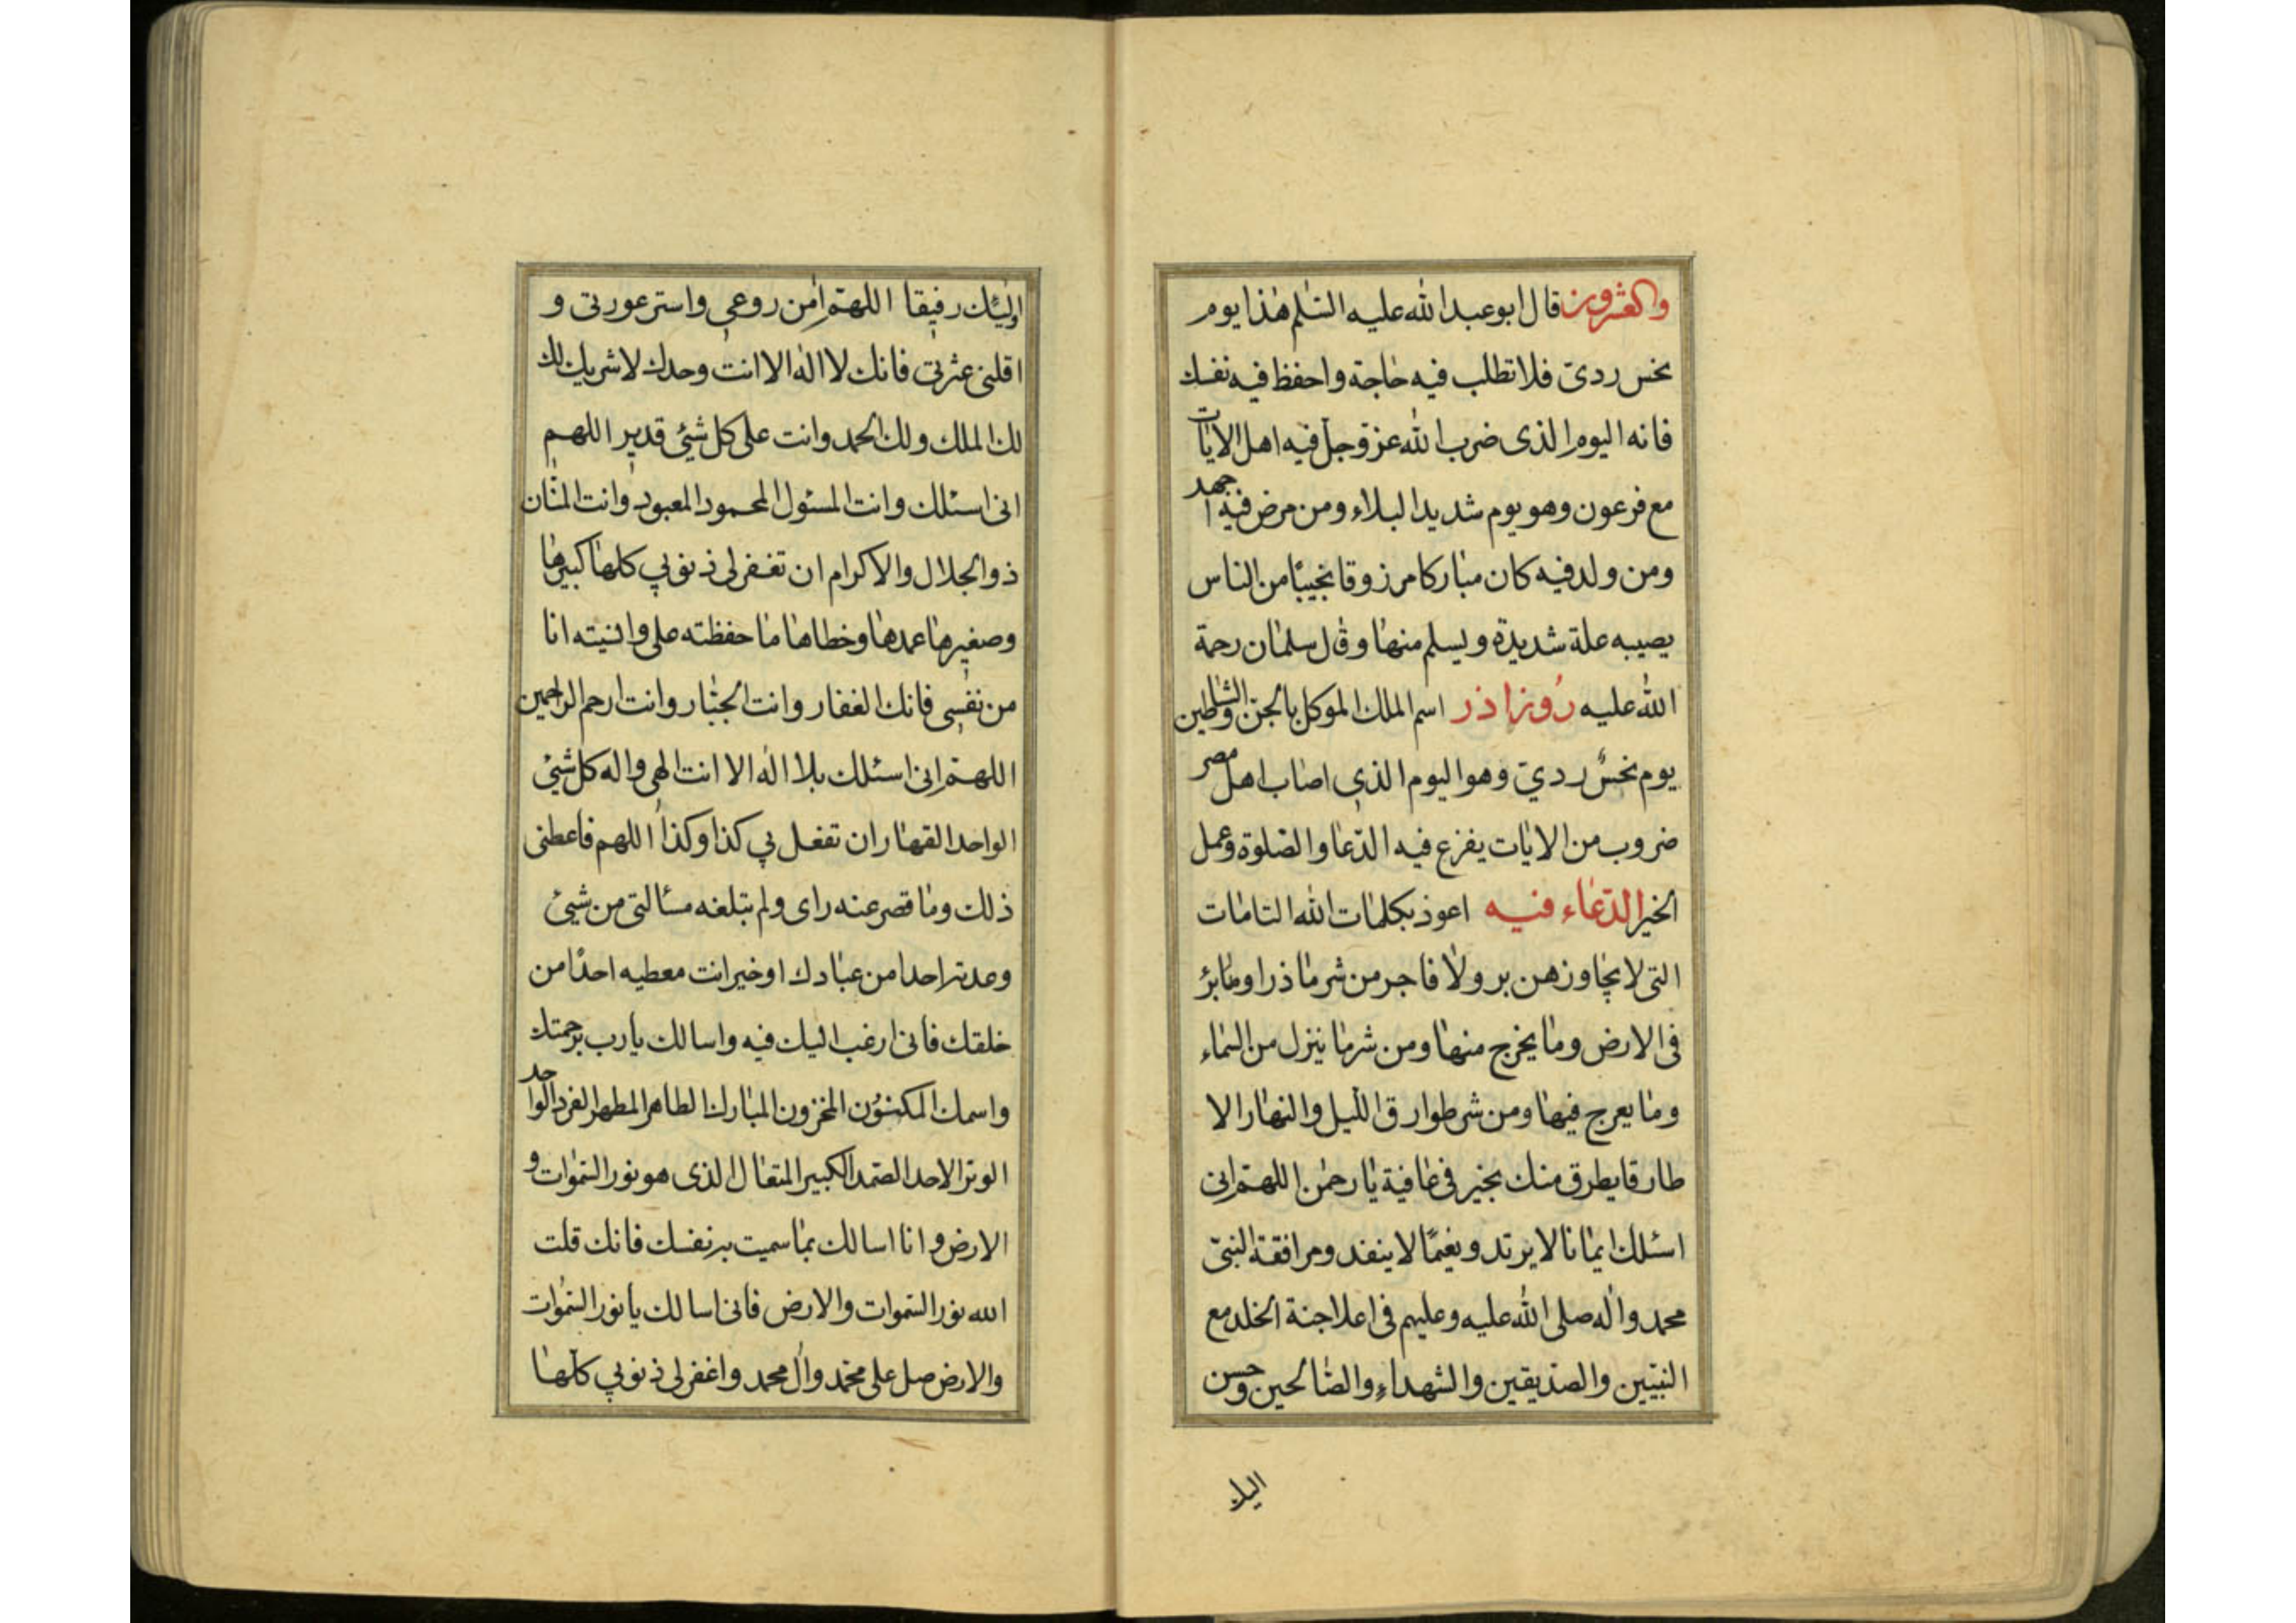 والعشرون قال ابو عبد الله عليه السّلم هذا يوم
نحس ردئ فلا تطلب فيه حاجة واحفظ فيه نفسك
فانه اليوم الذى ضرب الله عز وجل فيه اهل الايات
مع فرعون وهو يوم شديد البلاء ومن مرض فيه اجهد
ومن ولد فيه كان مباركا مرزوقا نجيبًا من الناس
يصيبه علة شديدة ويسلم منها وقال سلمان رحمة
الله عليه روز اذر اسم الملك الموكل بالجن والشياطين
يوم نحسٌ ردئ وهو اليوم الذي اصاب اهل مصر
ضروب من الايات يفزع فيه الدّعا والصّلوة وعمل
الخير الدّعاء فيه اعوذ بكلمات الله التامات
التى لا يجاوزهن بر ولا فاجر من شر ما ذرا وما برئ
فى الارض وما يخرج منها ومن شر ما ينزل من السّماء
وما يعرج فيها ومن شر طوارق الليل والنهار الا
طارقا يطرق منك بخير فى عافية يا رحمن اللهمّ انى
اسئلك ايمانا لا يرتد ونعيمًا لا ينفد ومرافقة النبىّ
محمد واله صلى الله عليه وعليهم فى اعلا جنة الخلد مع
النبيّين والصدّيقين والشهداء والصّالحين وحسن
اليك
اولئيك رفيقا اللهمّ امن روعي واستر عورتى و
اقلنى عثرتى فانك لا اله الا انت وحدك لا شريك لك
لك الملك ولك الحمد وانت على كل شئ قدير اللهم
انى اسئلك وانت المسئول المحمود المعبود وانت المنّان
ذو الجلال والاكرام ان تغفر لى ذنوبي كلها كبيرها
وصغيرها عمدها وخطاها ما حفظته على وانسيته انا
من نفسى فانك الغفار وانت الجبّار وانت ارحم الراحمين
اللهمّ انى اسئلك بلا اله الا انت الهى واله كل شئ
الواحد القهار ان تفعل بي كذا وكذا اللهم فاعطنى
ذلك وما قصر عنه راى ولم تبلغه مسالتى من شئ
وعدته احدا من عبادك او خير انت معطيه احدًا من
خلقك فانى ارغب اليك فيه واسالك يا رب برحمتك
واسمك المكنون المخزون المبارك الطاهر المطهر الفرد الواحد
الوتر الاحد الصّمد الكبير المتعال الذى هو نور السّموات و
الارض وانا اسالك بما سميت به نفسك فانك قلت
الله نور السّموات والارض فانى اسالك يا نور السّموات
والارض صل على محمّد وال محمد واغفر لى ذنوبي كلها